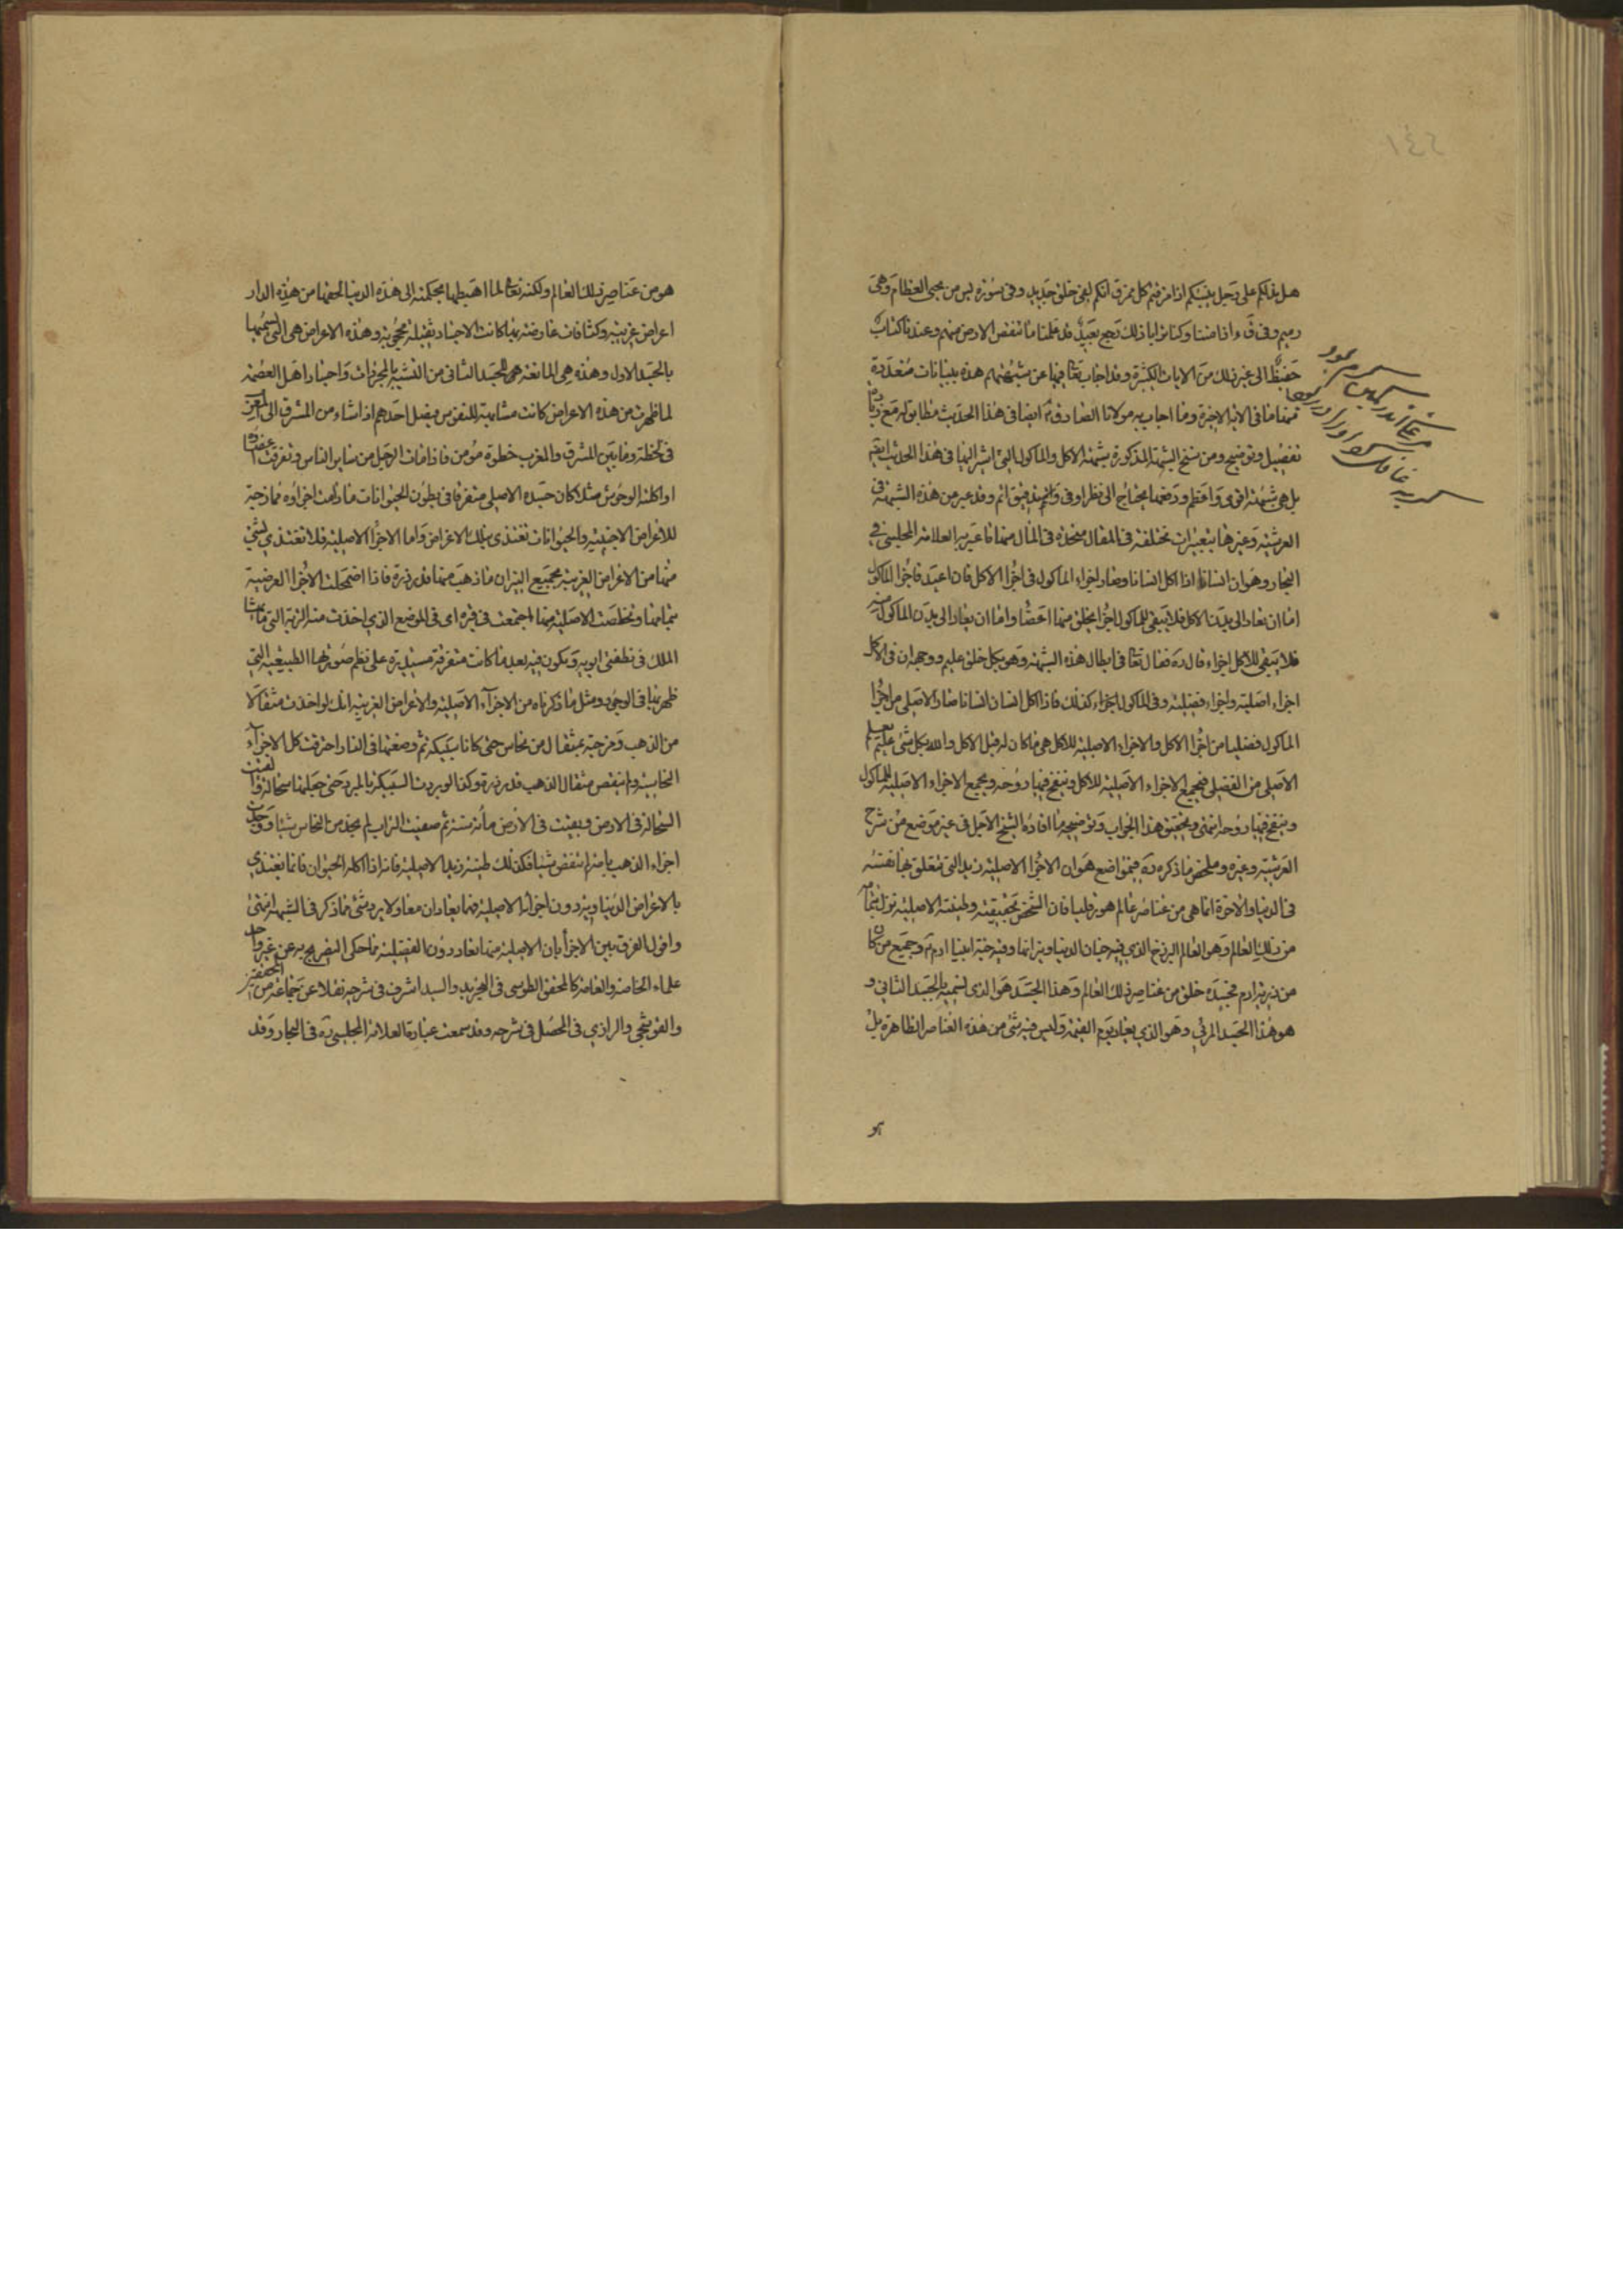 هل ندلكم على رجل ينبئكم اذا مزقتم كل ممزق انكم لفى خلق جديد وفى سورة يس من يحيى العظام وهى
رميم وفى ق ءاذا متنا وكنا ترابا ذلك رجع بعيد قد علمنا ما تنقص الارض منهم وعندنا كتاب
حفيظ الى غير ذلك من الايات الكثيرة وقد اجاب تعا فيها عن شبهتهم هذه ببيانات متعددة
منها ما فى الاية الاخيرة وما اجاب به مولانا الصادق ايضا فى هذا الحديث مطابق له مع زيادة
تفصيل وتوضيح ومن سنخ الشبهة المذكورة شبهة الاكل والماكول التى اشير اليها فى هذا الحديث
بل هى شبهة اقوى واعظم ودفعها يحتاج الى نظر اوفى وفهم دقيق اتم وقد عبر عن هذه الشبهة فى
العرشية وغيرها بتعبيرات مختلفة فى المقال متحدة فى المال منها ما عبر به العلامة المجلسى فى
البحار وهو ان انسانا اذا اكل انسانا وصار اجزاء الماكول فى اجزا الاكل فان اعيد فاجزا الماكول
اما ان تعاد الى بدن الاكل فلا يبقى للماكول اجزا يخلق منها اعضا واما ان يعاد الى بدن الماكول منه
فلا يبقى للاكل اجزاء قال ره فقال تعا فى ابطال هذه الشبهة وهو بكل خلق عليم ووجهه ان فى الاكل
اجزاء اصلية واجزاء فضلية وفى الماكول اجزاء كذلك فاذا اكل انسان انسانا صار الاصلى من اجزا
الماكول فضليا من اجزا الاكل والاجزاء الاصلية للاكل هى ما كان له قبل الاكل والله بكل شئ عليم يعلم
الاصلى من الفضلى فيجمع الاجزاء الاصلية للاكل وينفخ فيها روحه ويجمع الاجزاء الاصلية للماكول
وينفخ فيها روحه انتهى وتحقيق هذا الجواب وتوضيحه ما افاده الشيخ الاجل فى غير موضع من شرح
العرشية وغيره وملخص ما ذكره ره فيمواضع هو ان الاجزا الاصلية زيد التى تتعلق بها نفسه
فى الدنيا والاخرة انما هى من عناصر عالم هورقليا فان الشخص بحقيقته وطينته الاصلية نزل
من ذلك العالم وهو العالم البرزخ الذى فيه جنان الدنيا ونيرانها وفيه جنة ابينا ادم ع وجميع من كان
من ذرية ادم فجسده خلق من عناصر ذلك العالم وهذا الجسد هو الذى نسميه بالجسد الثانى و
هو هذا الجسد المرئى وهو الذى يعاد يوم القيمة وليس فيه شئ من هذه العناصر الظاهرة بل
هو
هو من عناصر ذلك العالم ولكنه تعا لما اهبطها بحكمته الى هذه الدنيا لحقها من هذه الدار
اعراض غريبة وكثافات عارضة بها كانت الاجساد ثقيلة محجوبة وهذه الاعراض هى التى نسميها
بالجسد الاول وهذه هى المانعة هى للجسد الثانى من التشبه بالمجردات واجساد اهل العصمة
لما ظهرت من هذه الاعراض كانت مشابهة للنفوس فيصل احدهم اذا شاء من المشرق الى المغرب
فى لحظة وما بين المشرق والمغرب خطوة مؤمن فاذا مات الرجل من ساير الناس وتفرقت اعضاؤه
او اكلته الوحوش مثلا كان جسده الاصلى متفرقا فى بطون الحيوانات ما دامت اجزاؤه ممازجة
للاعراض الاجنبية والحيوانات تغتذى بتلك الاعراض واما الاجزا الاصلية فلا تغتذى بشئ
منها من الاعراض الغريبة بجميع النيران ما ذهب منها قدر ذرة فاذا اضمحلت الاجزا العرضية
بتمامها وتخلصت الاصلية منها اجتمعت فى قبره اى فى الموضع الذى اخذت منه التربة التى ماثها
الملك فى نطفتى ابويه وتكون فيه بعد ما كانت متفرقة مستديرة على نظم صورتها الطبيعية التى
ظهر بها فى الوجود ومثل ما ذكرناه من الاجزآء الاصلية والاعراض الغريبة انك لو اخذت مثقالا
من الذهب ومزجته بمثقال من نحاس حتى كانا سبيكة ثم وضعتها فى النار احترقت كل الاجزآء
النحاسية ولم ينقص مثقال الذهب قدر ذرة وكذا لو بردت السبيكة بالمبرد حتى جعلتها سحالة والقيت
السحالة فى الارض وبقيت فى الارض مأة سنة ثم صفيت التراب لم تجد من النحاس شيئا ووجدت
اجزاء الذهب باسرها لم تنقص شيئا فكذلك طينة زيد الاصلية فانه اذا اكله الحيوان فانما يغتذى
بالاعراض الدنياوية دون اجزائه الاصلية فهما يعادان معا ولا يرد شئ مما ذكر فى الشبهة انتهى
واقول الفرق بين الاجزا بان الاصلية منها تعاد دون الفضلية مما حكى التصريح به عن غير واحد
علماء الخاصة والعامة كالمحقق الطوسى فى التجريد والسيد اشرف فى شرحه نقلا عن جماعة من المحققين
والقوشجى والرازى فى المحصل فى شرحه وقد سمعت عبارة العلامة المجلسى ره فى البحار وقد